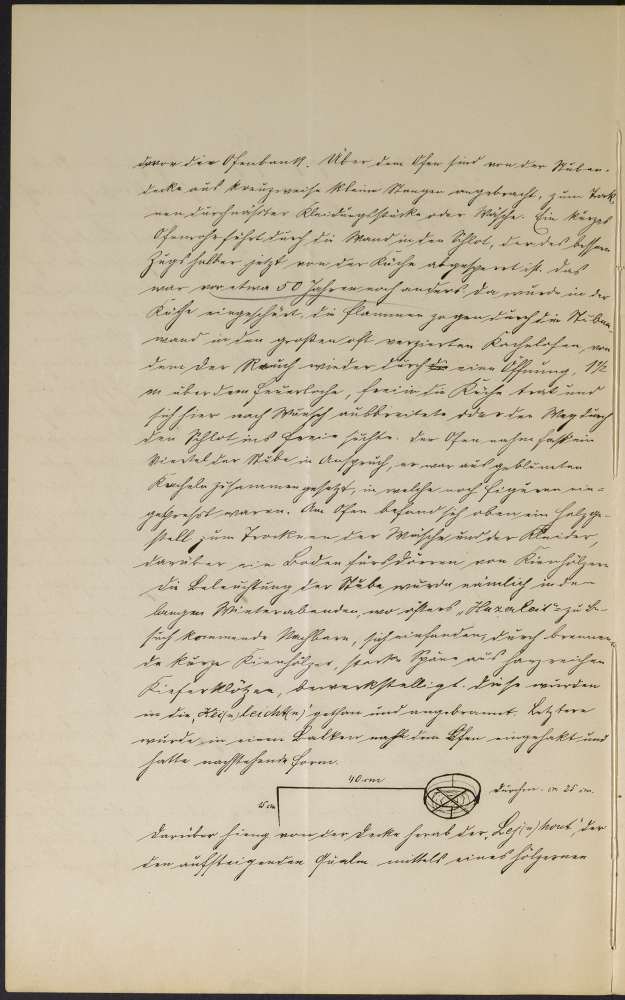 davor die Ofenbank. Über dem Ofen sind von der Stuben-
decke aus kreuzweise kleine Stangen angebracht, zum Trock-
nen durchnäßter Kleidungsstücke oder Wäsche. Ein kurzes
Ofenrohr führt durch die Wand in den Schlot, der des bessern
Zugs halber jetzt von der Küche abgesperrt ist. Das
war vor etwa 50 Jahren noch anders. Da wurde in der
Küche eingeschürt, die Flammen zogen durch die Stuben-
wand in den großen oft verzierten Kachelofen, von
dem der Rauch wieder durch eine Öffnung, 1½
m über dem Feuerloche, frei in die Küche trat und
sich hier nach Wunsch ausbreitete oder den Weg durch
den Schlot ins Freie suchte. Der Ofen nahm fast ein
Viertel der Stube in Anspruch, er war aus geblümten
Kacheln zusammengesetzt, in welche noch Figuren ein-
gepresst waren. Am Ofen befand sich oben ein Holzge-
stell zum Trocknen der Wäsche und der Kleider,
darüber ein Boden fürs Dörren von Kienhölzern
Die Beleuchtung der Stube wurde nämlich in den
langen Winterabenden, wo öfters zu Be-
such kommende Nachbarn, sich einfanden, durch brennen-
de kurze Kienhölzer, starke Späne aus harzreichen
Kieferklötzen, bewerkstelligt. Diese wurden
in die gethan und angebrannt. Letztere
wurde in einen Balken nächst dem Ofen eingehakt und
hatte nachstehende Form.
40 cm
Durchm. 25 cm.
15 cm
Darüber hieng von der Decke herab der der
den aufsteigenden Qualm mittels eines hölzernen